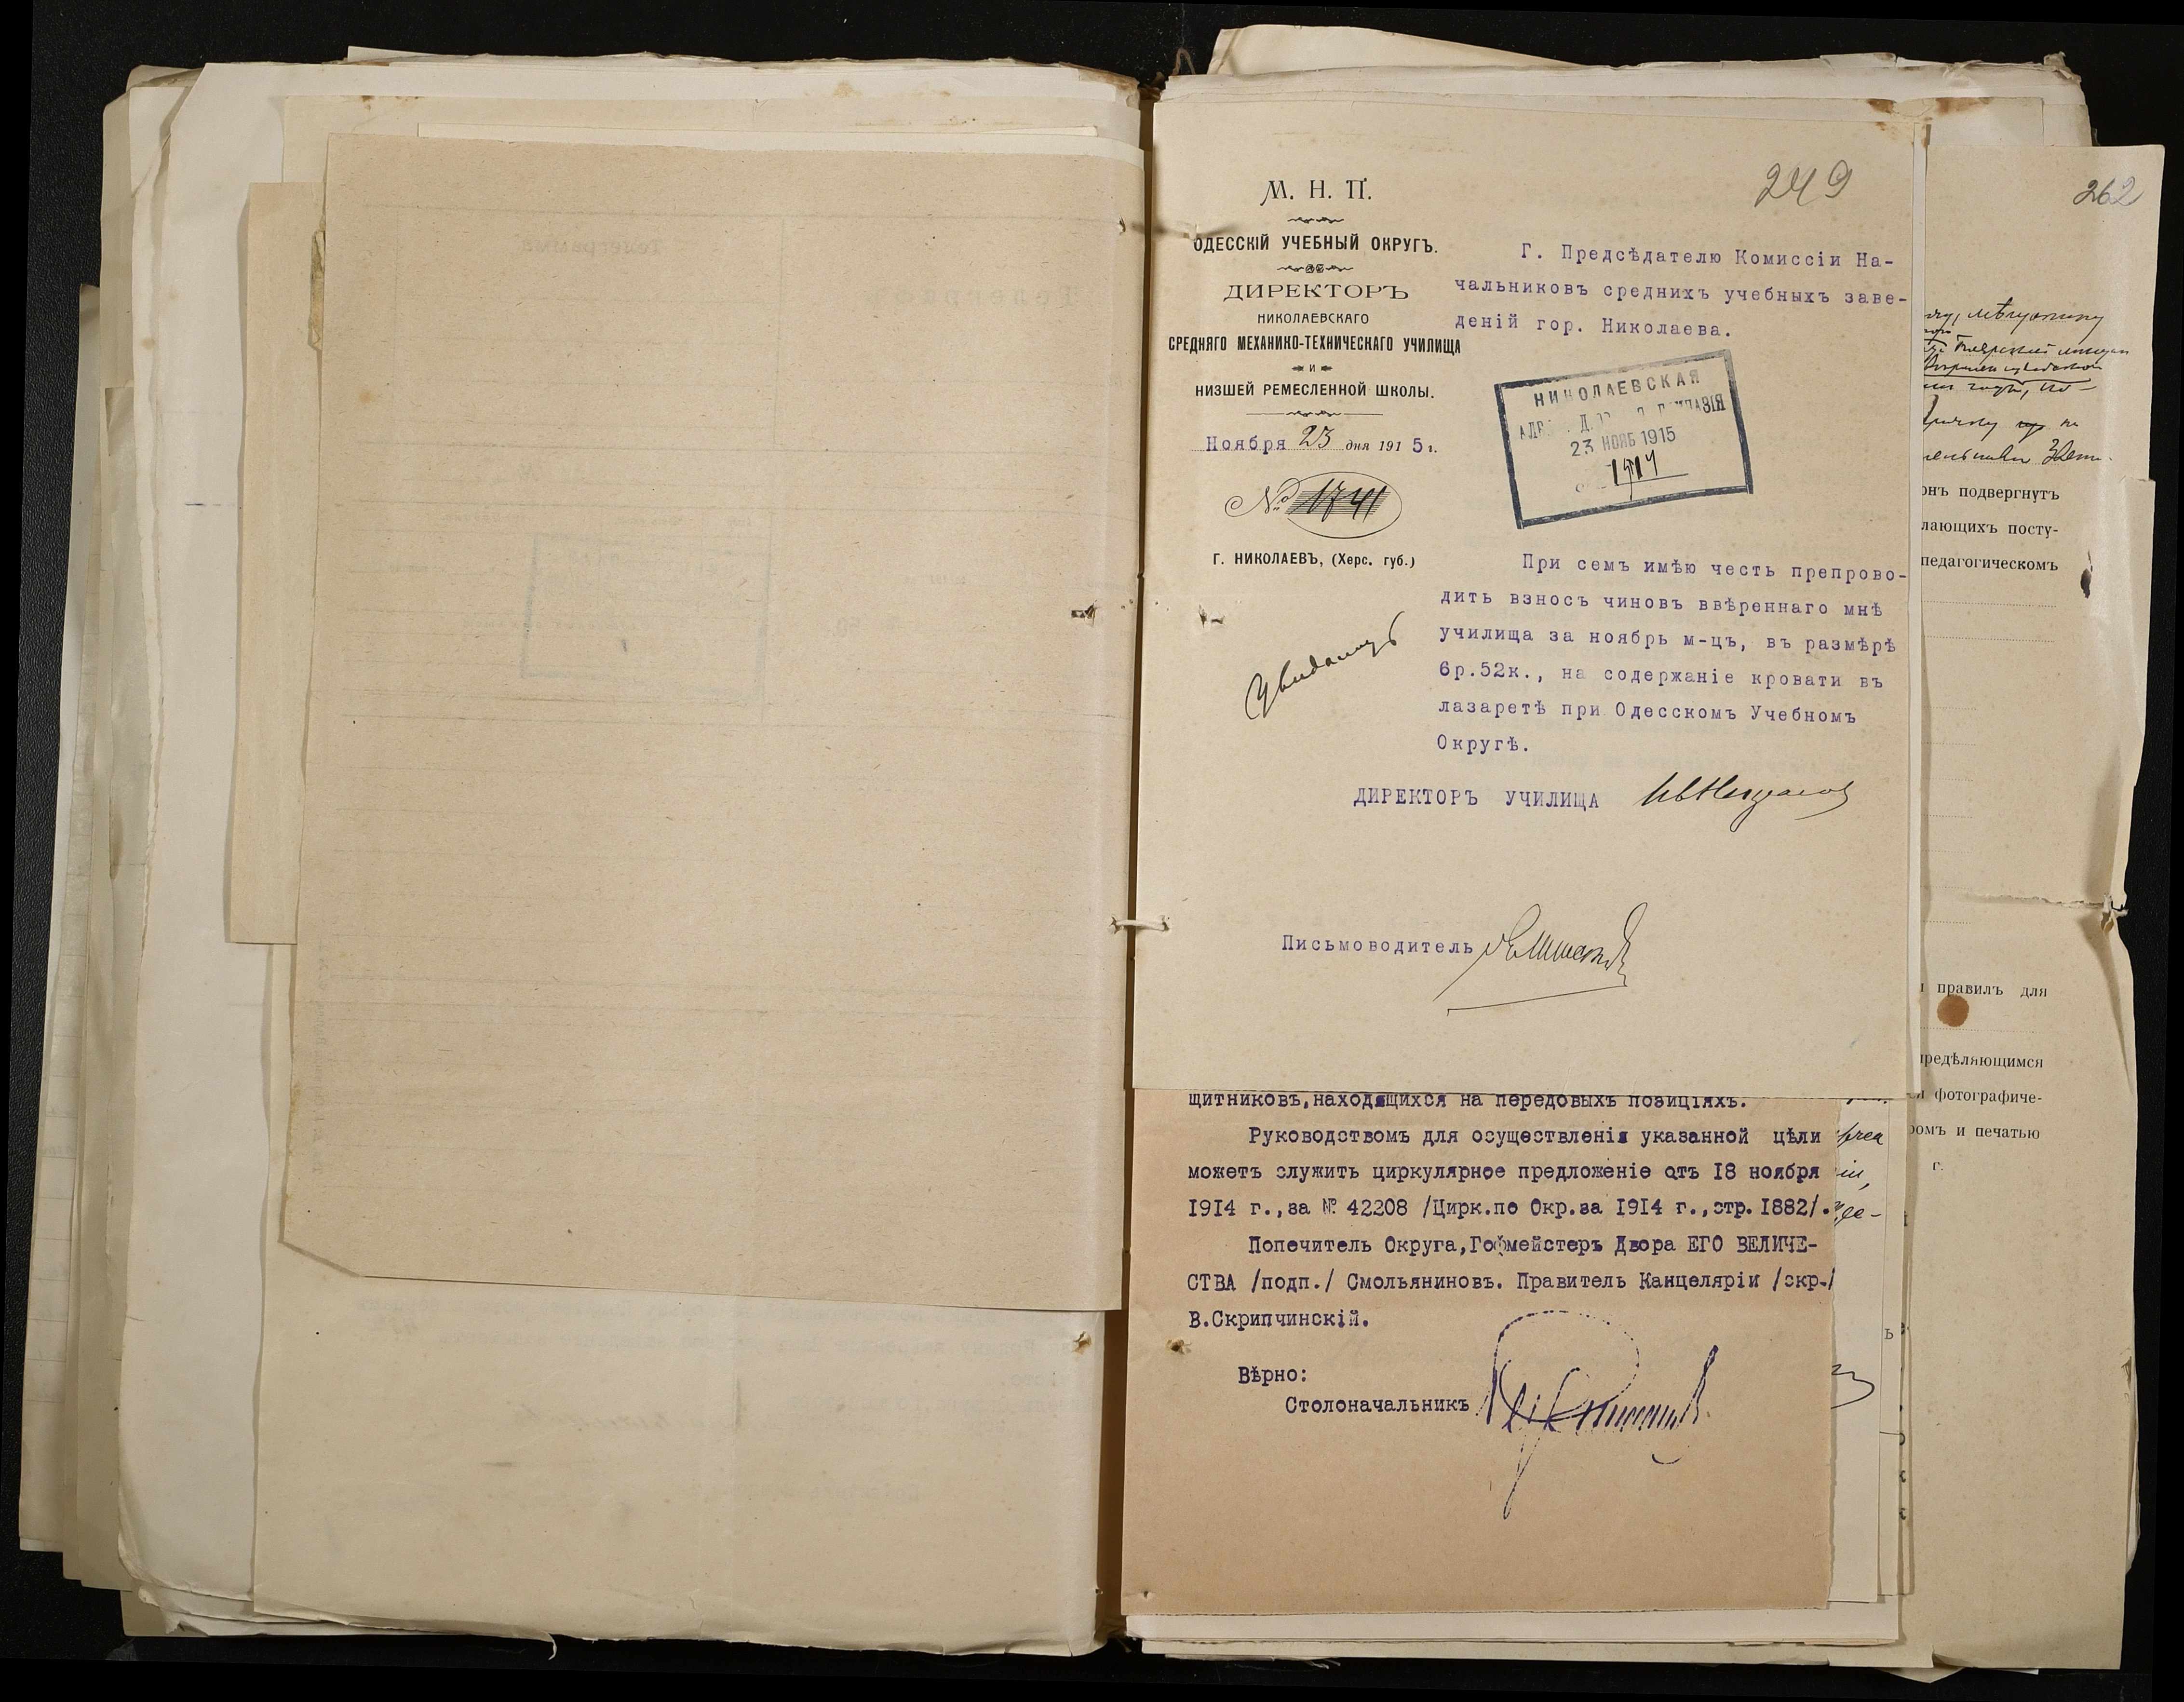 М. Н. П.
ОДЕССКІЙ УЧЕБНЫЙ ОКРУГЪ.
ДИРЕКТОРЪ
НИКОЛАЕВСКАГО
СРЕДНЯГО МЕХАНИКО-ТЕХНИЧЕСКАГО УЧИЛИЩА
И
НИЗШЕЙ РЕМЕСЛЕННОЙ ШКОЛЫ.
Ноября 23 дня 1915 г.
№ 1741
Г. НИКОЛАЕВЪ, (Херс. губ.)
249
Г. Предсѣдателю Комиссіи На-
чальниковъ среднихъ учебныхъ заве-
деній гор. Николаева.
НИКОЛАЕВСКАЯ
23 НОЯБ 1915
При семъ имѣю честь препрово-
дить взносъ чиновъ ввѣреннаго мнѣ
училища за ноябрь м-цъ, въ размѣрѣ
6р.52к., на содержаніе кровати въ
лазаретѣ при Одесскомъ Учебномъ
Округѣ.
ДИРЕКТОРЪ УЧИЛИЩА
Письмоводитель
щитниковъ,находящихся на передовыхъ позиціяхъ.
Руководствомъ для осуществленія указанной цѣли
можетъ служить циркулярное предложеніе отъ 18 ноября
1914 г.,за № 42208 /Цирк.по Окр.за 1914 г.,стр.1882/.
Попечитель Округа,Гофмейстеръ Двора ЕГО ВЕЛИЧЕ-
СТВА /подп./ Смольяниновъ. Правитель Канцеляріи /скр./
В.Скрипчинскій.
Вѣрно:
Столоначальникъ
262
онъ подвергнутъ
лающихъ посту-
педагогическомъ
правилъ для
предѣляющимся
фотографиче-
ромъ и печатью
г.